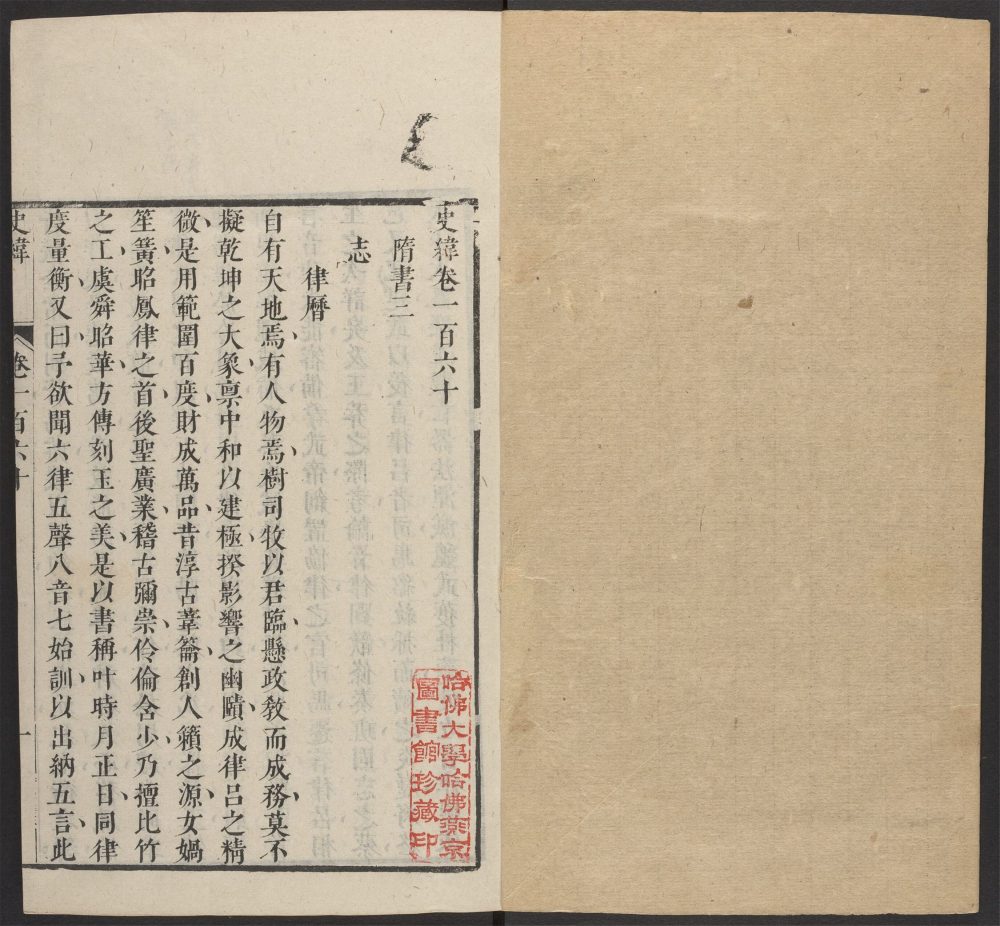 史緯卷一百六十
隋書三
志
律曆
自有天地焉有人物焉樹司牧以君臨懸政教而成務莫不
擬乾坤之大象稟中和以建極揆影響之幽賾成律呂之精
微是用範圍百度財成萬品昔淳古葦籥創人籟之源女媧
笙簧昭鳳律之首後聖廣業稽古彌崇伶倫含少乃擅比竹
之工虞舜昭華方傳刻玉之美是以書稱叶時月正日同律
度量衡又曰予欲聞六律五聲八音七始訓以出納五言此
史緯
卷一百六十
一
哈佛大學哈佛燕京
圖書館珍藏印